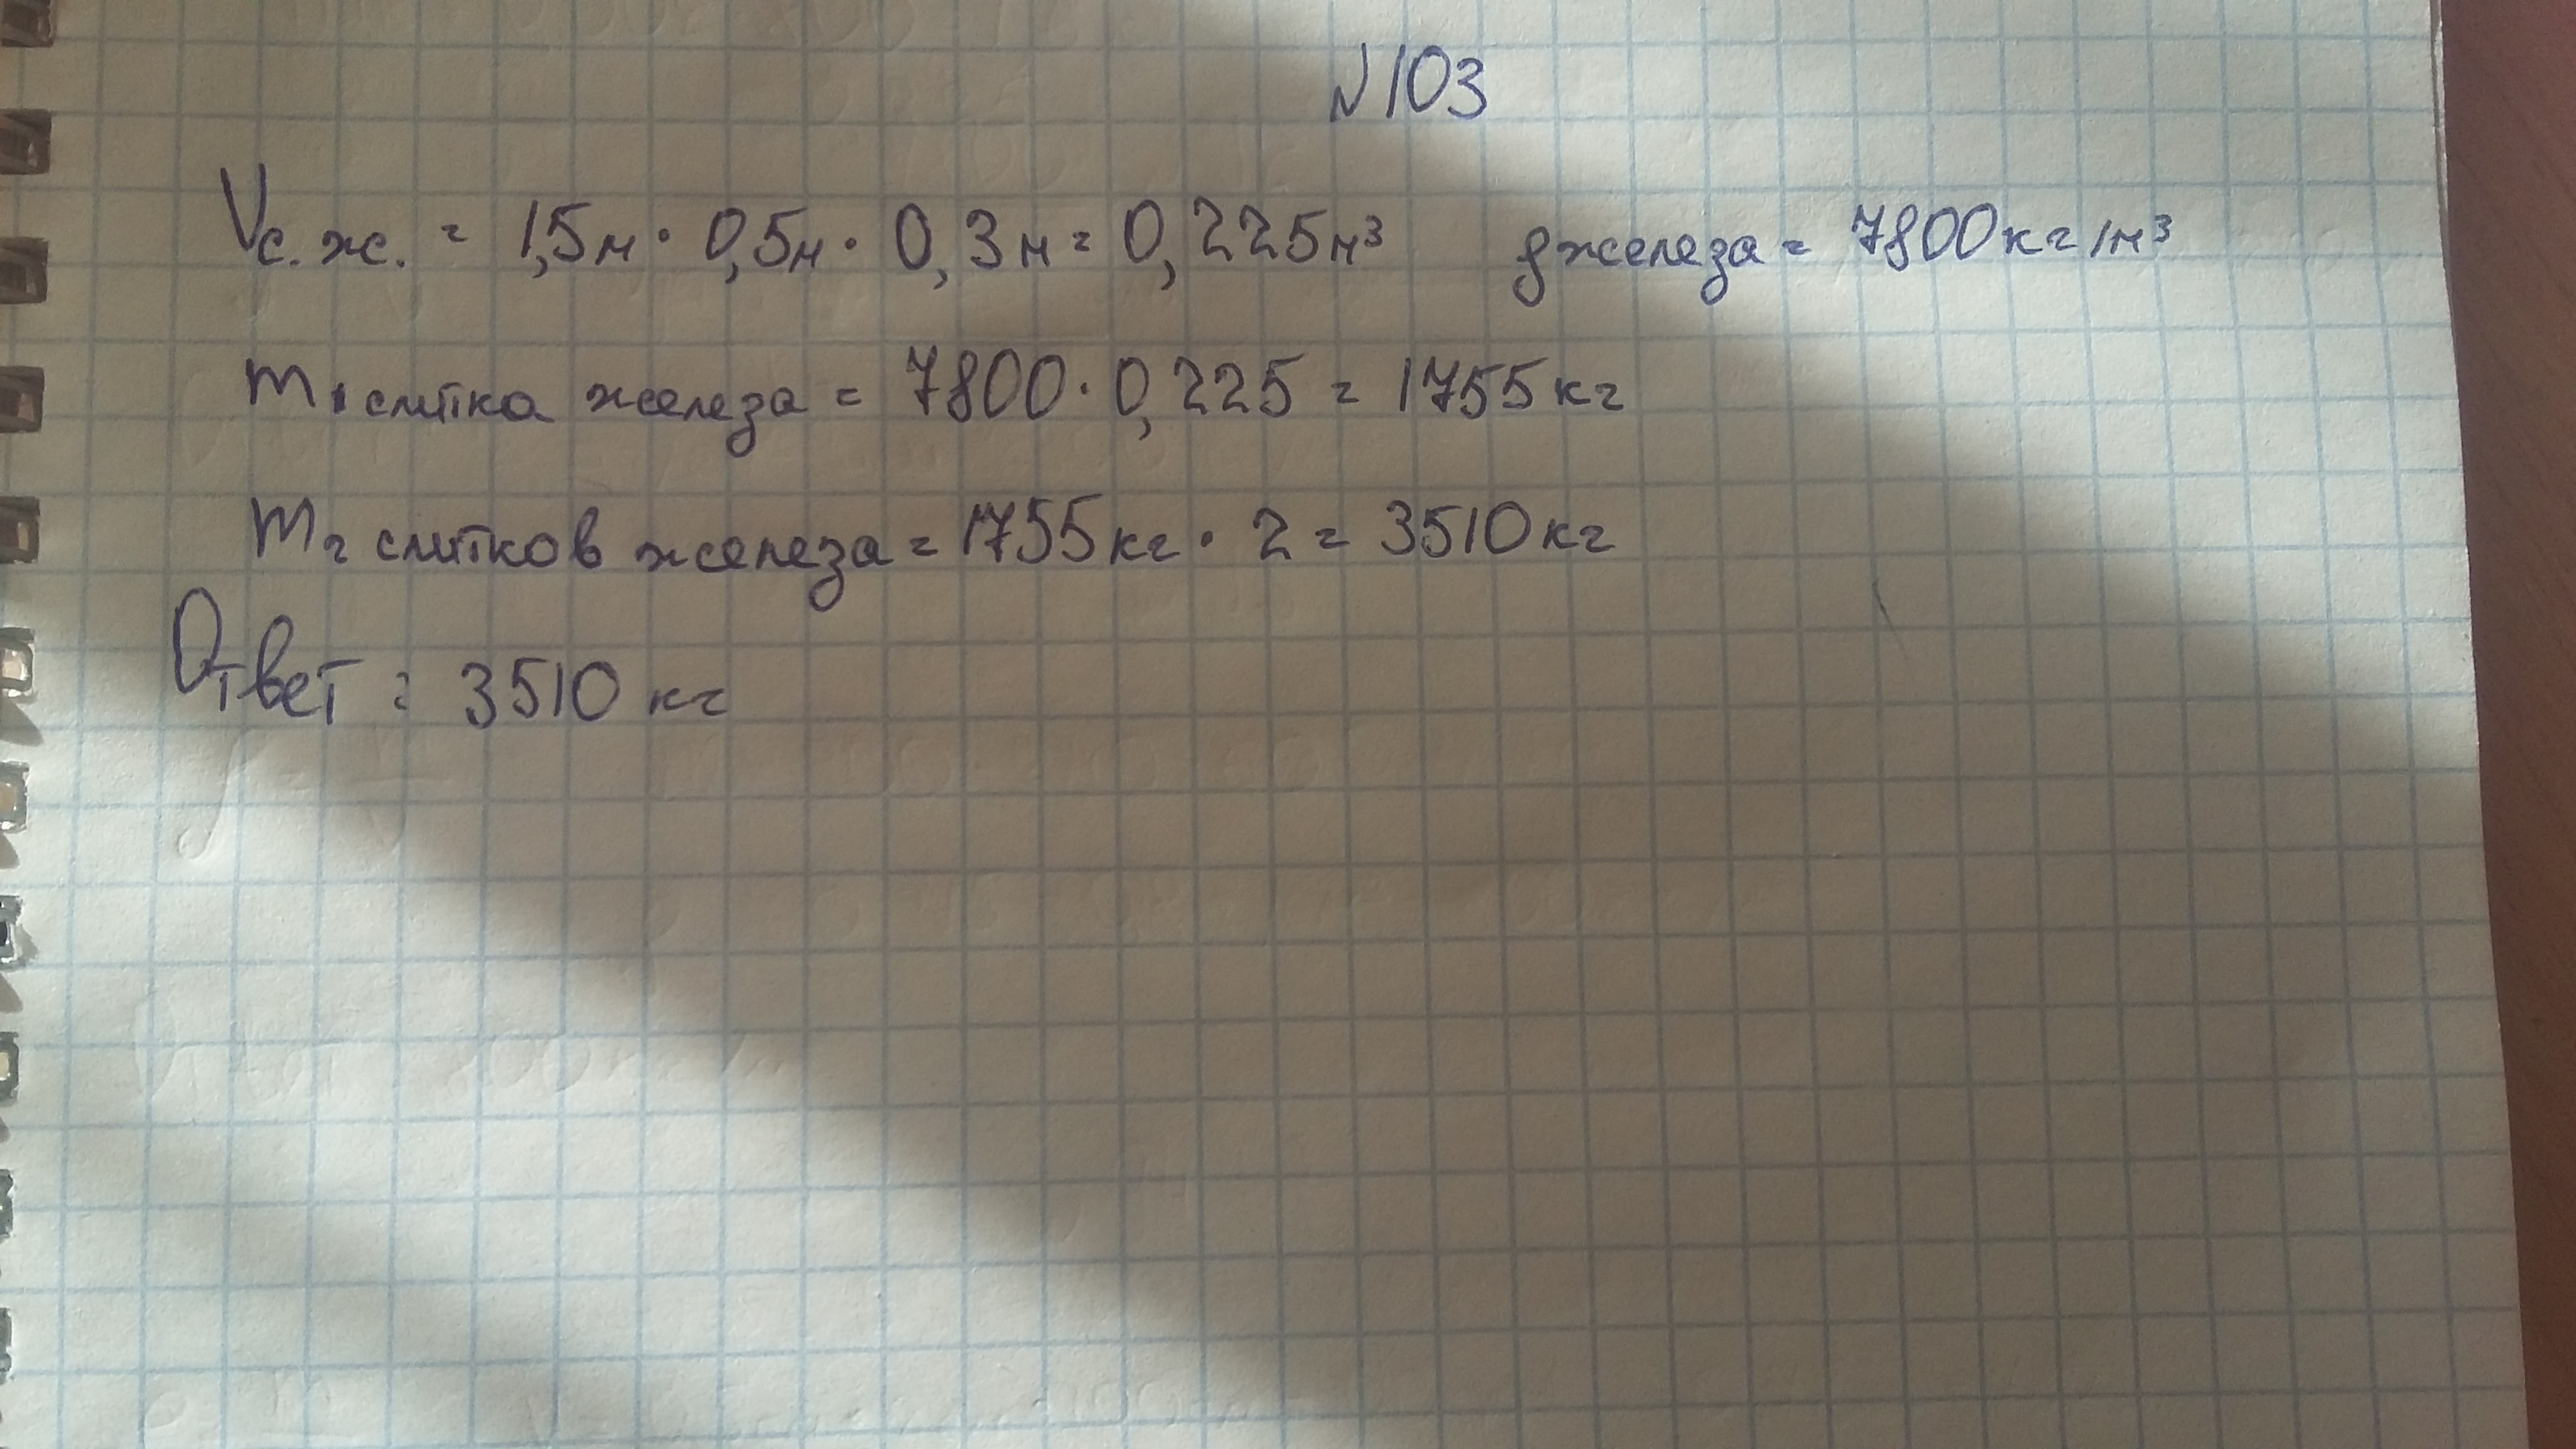 N103
Vс.ж. = 1,5м · 0,5м · 0,3м = 0,225м³ ρжелеза = 7800кг/м³
m1 слитка железа = 7800 · 0,225 = 1755кг
m2 слитков железа = 1755кг · 2 = 3510кг
Ответ: 3510 кг